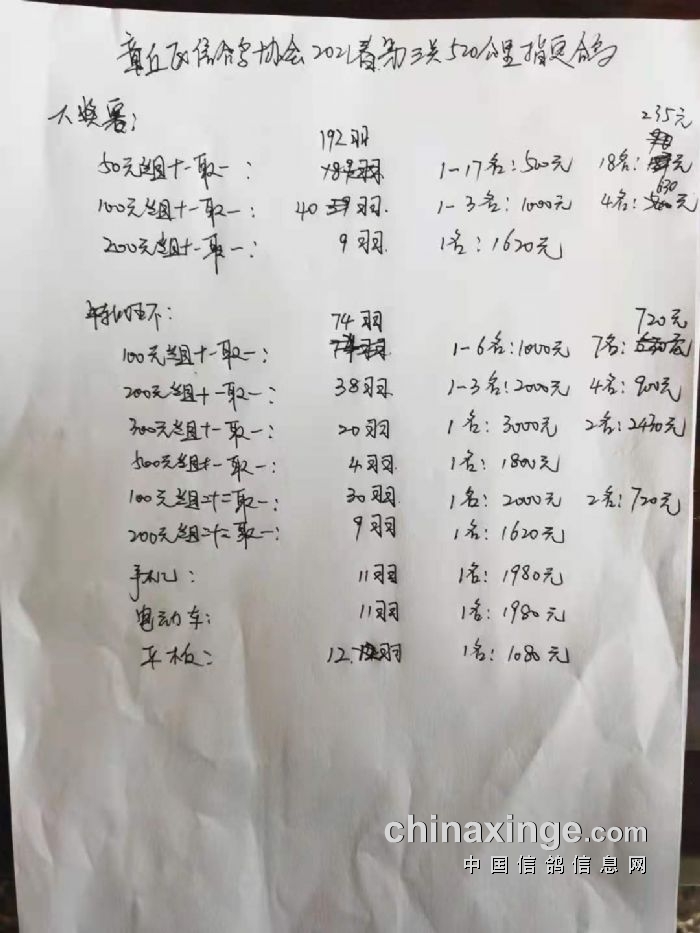 章丘区信鸽协会2021春第三关520公里指定鸽
大奖署:
50元组十一取一: 192羽 1-17名:500元 18名:235元
100元组十一取一: 40羽 1-3名:1000元 4名:630元
200元组十一取一: 9羽 1名:1620元
环:
100元组十一取一: 74羽 1-6名:1000元 7名:720元
200元组十一取一: 38羽 1-3名:2000元 4名:900元
300元组十一取一: 20羽 1名:3000元 2名:2430元
500元组十一取一: 4羽 1名:1800元
100元组二十二取一: 30羽 1名:2000元 2名:720元
200元组二十二取一: 9羽 1名:1620元
手机: 11羽 1名:1980元
电动车: 11羽 1名:1980元
平板: 12羽 1名:1080元
chinaxinge.com
中国信鸽信息网